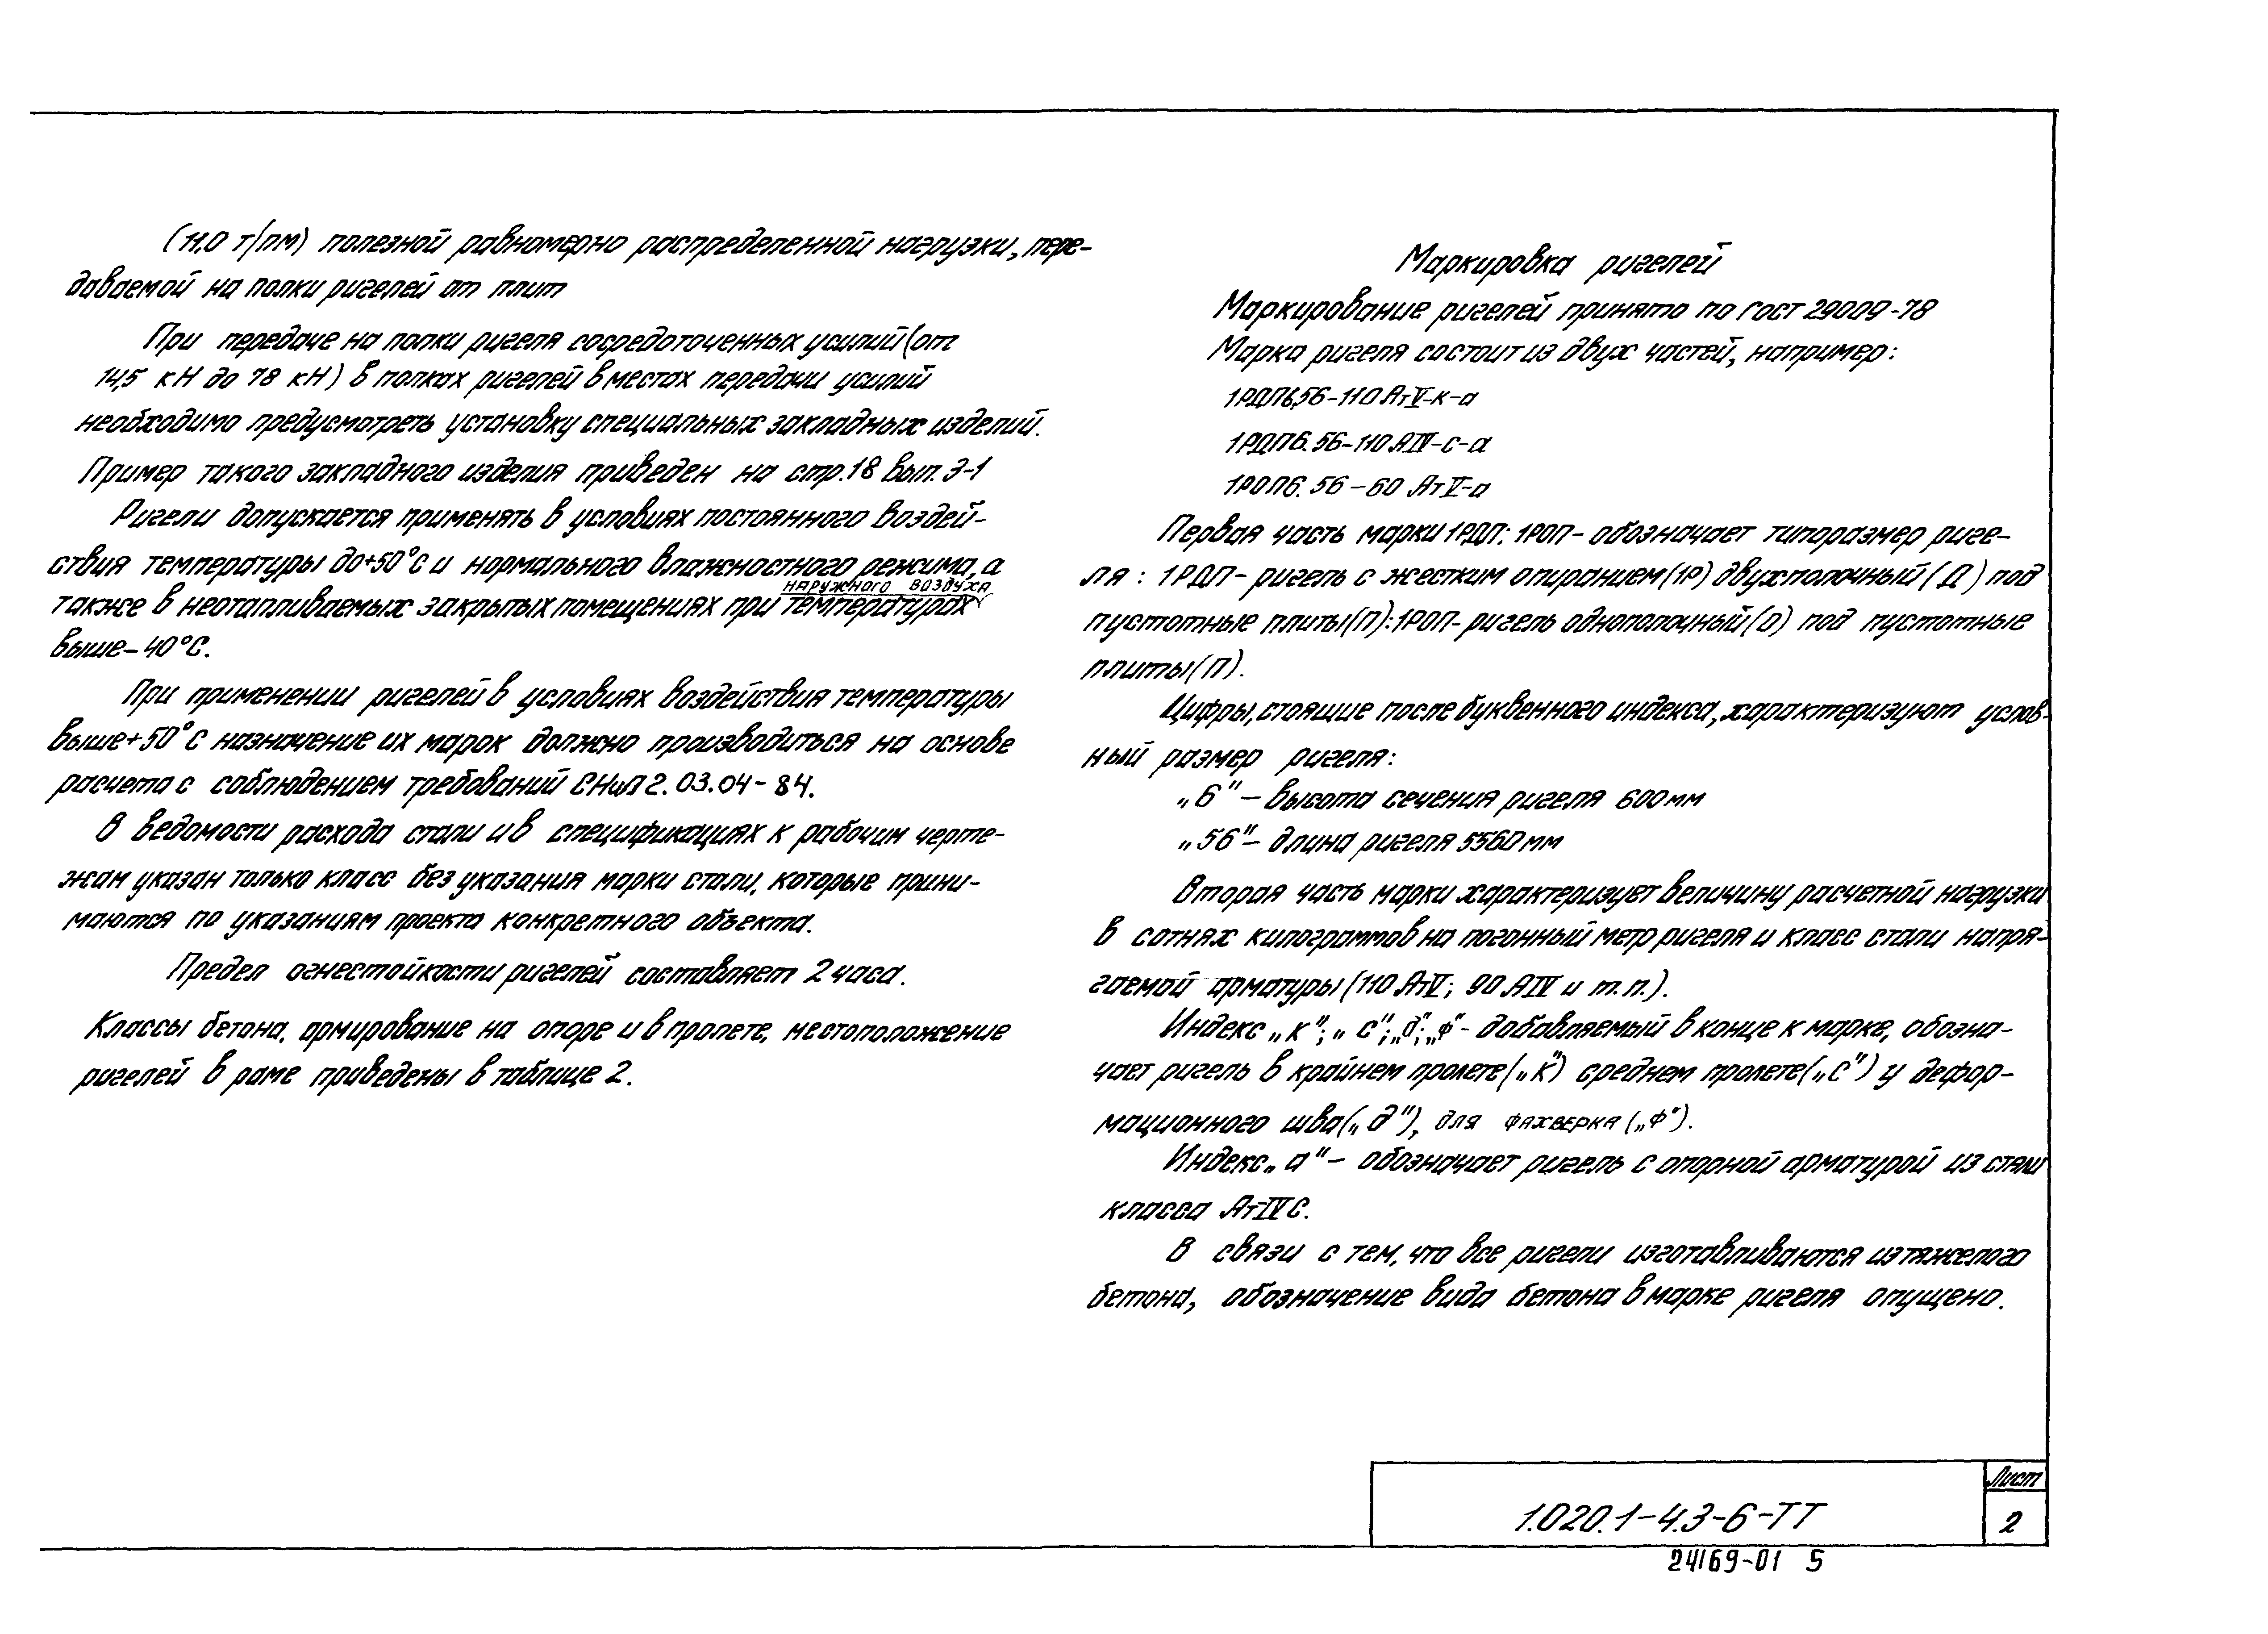 (11,0 т/пм) полезной равномерно распределенной нагрузки, пере-
даваемой на полки ригелей от плит
При передаче на полки ригеля сосредоточенных усилий (от
14,5 кН до 78 кН) в полках ригелей в местах передачи усилий
необходимо предусмотреть установку специальных закладных изделий.
Пример такого закладного изделия приведен на стр.18 вып. 3-1
Ригели допускается применять в условиях постоянного воздей-
ствия температуры до+50°С и нормального влажностного режима, а
наружного воздуха
также в неотапливаемых закрытых помещениях при температурах
выше-40°С.
При применении ригелей в условиях воздействия температуры
выше+50°С назначение их марок должно производиться на основе
расчета с соблюдением требований СНиП 2.03.04-84.
В ведомости расхода стали и в спецификациях к рабочим черте-
жам указан только класс без указания марки стали, которые прини-
маются по указаниям проекта конкретного объекта.
Предел огнестойкости ригелей составляет 2 часа.
Классы бетона, армирование на опоре и в пролете, местоположение
ригелей в раме приведены в таблице 2.
Маркировка ригелей
Маркирование ригелей принято по ГОСТ 29009-78
Марка ригеля состоит из двух частей, например:
1РДП6.56-110АтV-к-а
1РДП6.56-110АIV-с-а
1РОП6.56-60 АтV-а
Первая часть марки 1РДП; 1РОП- обозначает типоразмер риге-
ля: 1РДП- ригель с жестким опиранием(1Р) двухполочный (Д) под
пустотные плиты(П):1РОП- ригель однополочный(О) под пустотные
плиты(П).
Цифры, стоящие после буквенного индекса, характеризуют услов-
ный размер ригеля:
„6" – высота сечения ригеля 600мм
„56"– длина ригеля 5560мм
Вторая часть марки характеризует величину расчетной нагрузки
в сотнях килограммов на погонный метр ригеля и класс стали напря-
гаемой арматуры (110 АтV; 90 АIV и т.п.).
Индекс „к"; „с"; „д"; „ф"- добавляемый в конце к марке, обозна-
чает ригель в крайнем пролете(„к") среднем пролете(„с") у дефор-
мационного шва(„д"), для фахверка („ф").
Индекс„а"– обозначает ригель с опорной арматурой из стали
класса Ат-IVС.
В связи с тем, что все ригели изготавливаются из тяжелого
бетона, обозначение вида бетона в марке ригеля опущено.
1.020.1-4.3-6-ТТ
Лист
2
24169-01 5